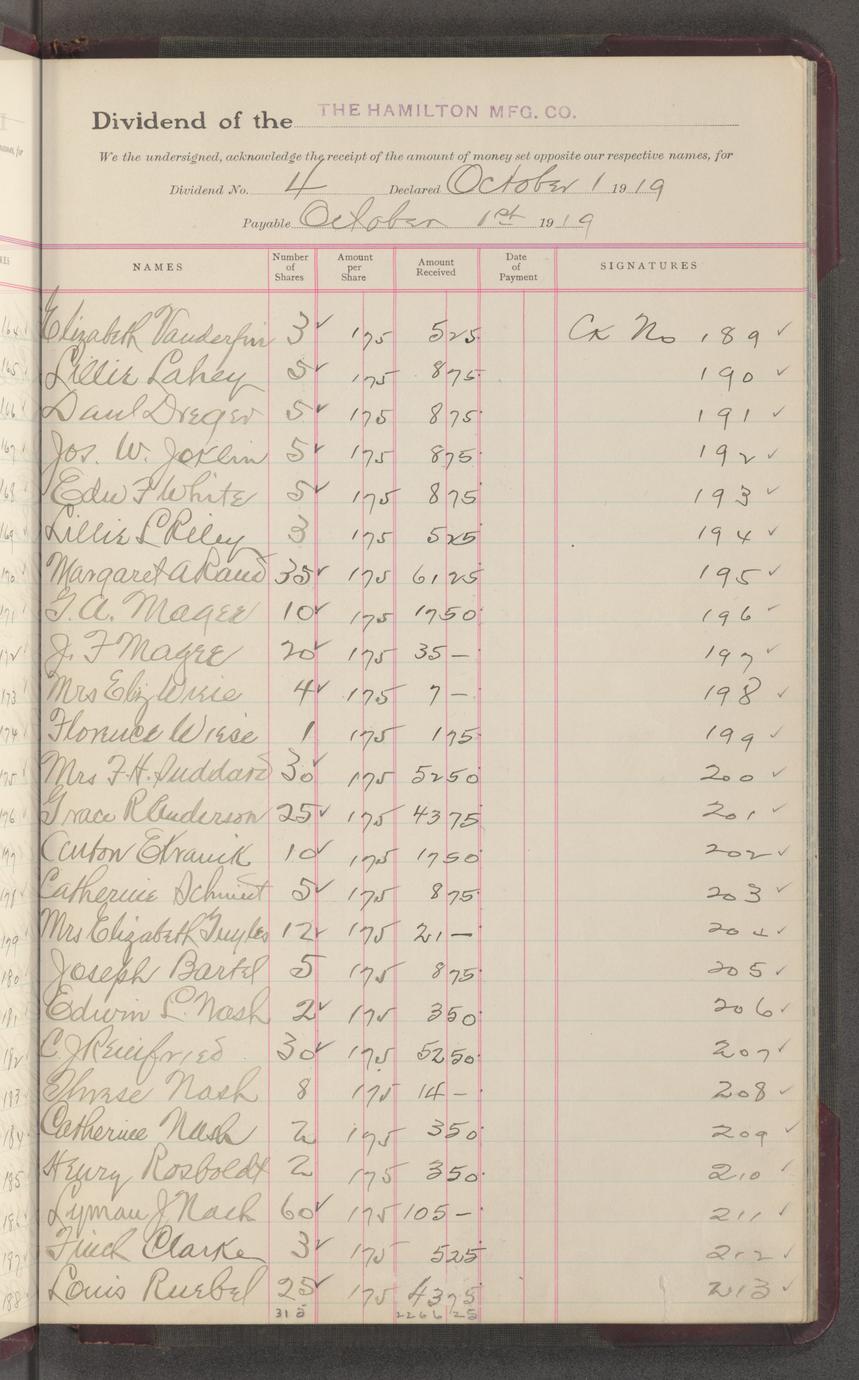 Dividend of the THE HAMILTON MFG. CO.
We the undersigned, acknowledge the receipt of the amount of money set opposite our respective names, for
Dividend No. 4 Declared October 1 1919
Payable October 1st 1919
NAMES Number of Shares Amount per Share Amount Received Date of Payment SIGNATURES
Elizabeth 3✓ 175 525 Ck No 189 ✓
Lillie Lahey 5✓ 175 875 190 ✓
Paul Dreger 5✓ 175 875 191 ✓
Jos. W. Joklin 5✓ 175 875 192 ✓
Edw F White 5✓ 175 875 193 ✓
Lillie L Riley 3 175 525 194 ✓
Margaret A Rand 35✓ 175 6125 195 ✓
G. A. Magee 10✓ 175 1750 196 ✓
J. F Magee 20✓ 175 35 — 197 ✓
Mrs Eliz Wiese 4✓ 175 7 — 198 ✓
Florence Wiese 1 175 175 199 ✓
Mrs F. H. Suddard 30✓ 175 5250 200 ✓
Grace R Anderson 25✓ 175 4375 201 ✓
Anton 10✓ 175 1750 202 ✓
Catherine Schmitt 5✓ 175 875 203 ✓
Mrs Elizabeth 12✓ 175 21 — 204 ✓
Joseph Bartel 5 175 875 205 ✓
Edwin L. Nash 2✓ 175 350 206 ✓
C. J Renfried 30✓ 175 5250 207 ✓
Nash 8 175 14 — 208 ✓
Catherine Nash 2 175 350 209 ✓
Henry Rosboldt 2 175 350 210 ✓
Lyman J Nash 60✓ 175 105 — 211 ✓
Finch Clarke 3✓ 175 525 212 ✓
Louis Ruebel 25✓ 175 4375 213 ✓
315 2266 25